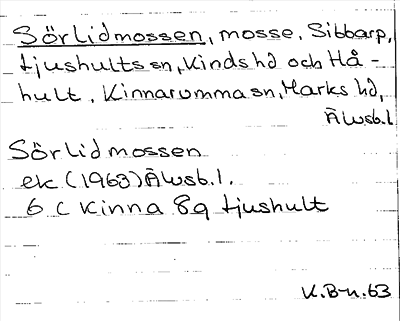 Sörlidmossen, mosse, Sibbarp,
tjushults sn, Kinds hd och Hå-
hult, Kinnarumma sn, Marks hd,
Älvsb.l
Sörlidmossen
ek (1963) Älvsb.l.
6 C Kinna 8g tjushult
K.B-n.63